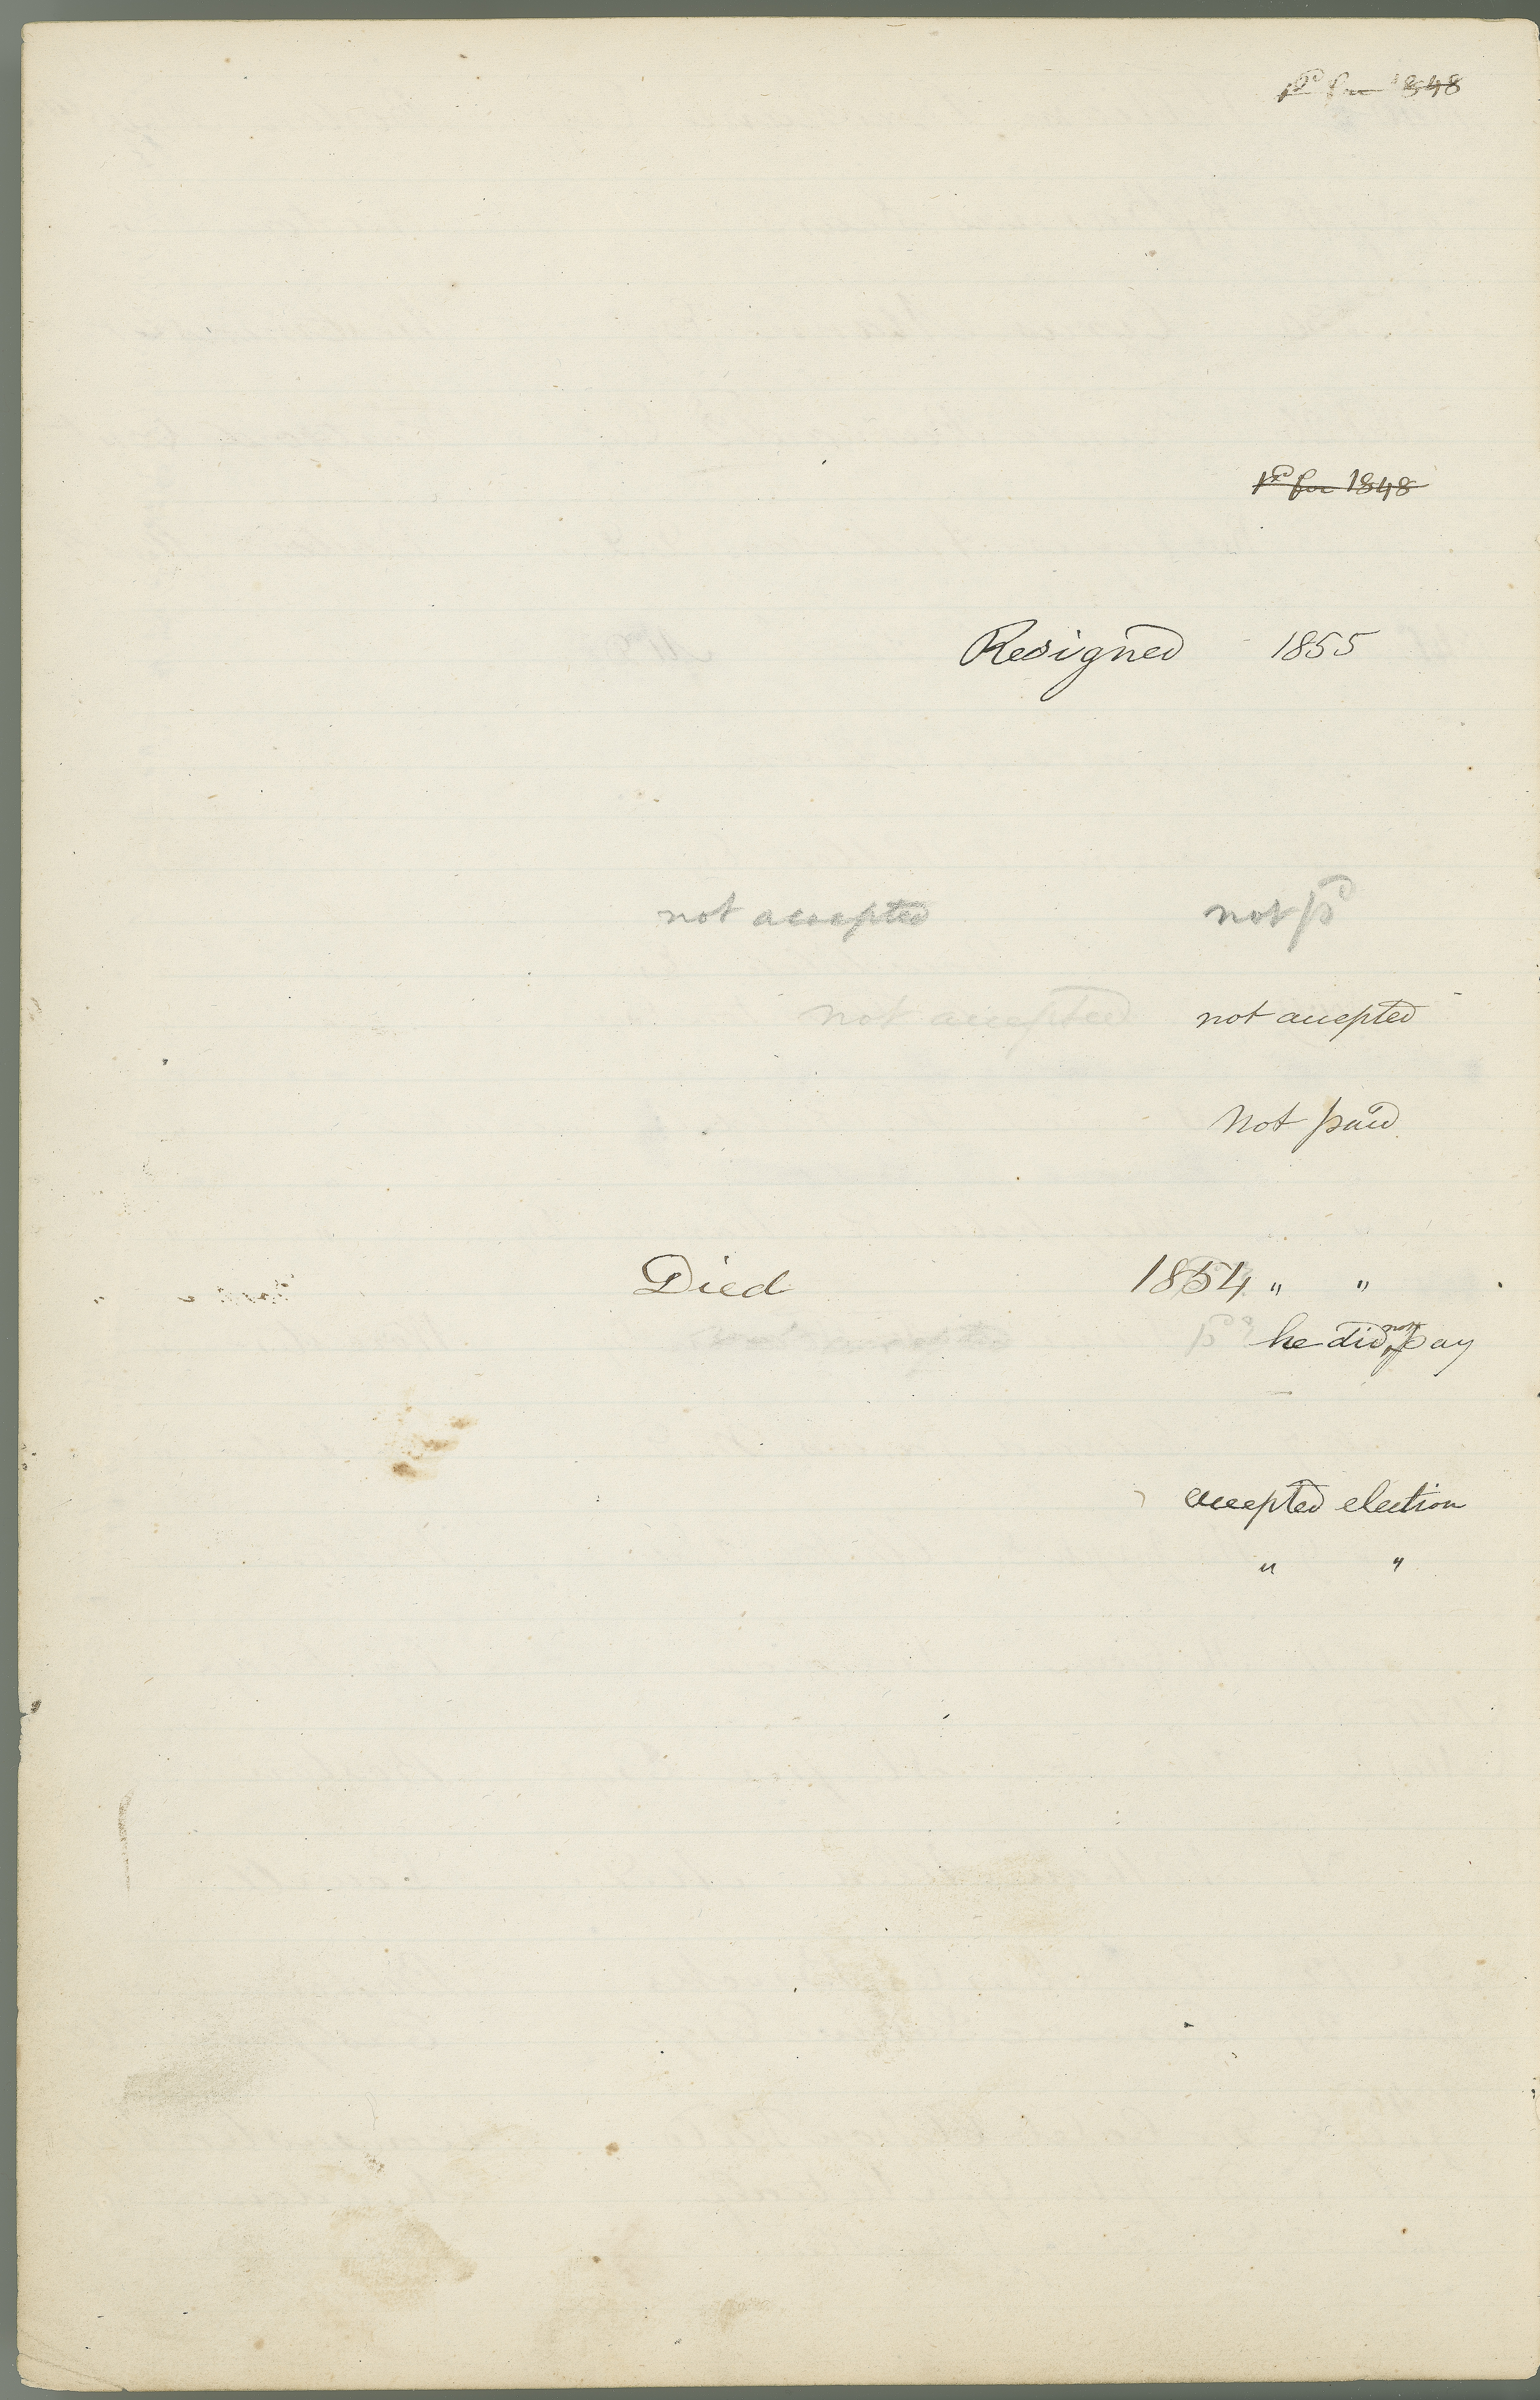 pd for 1848
pd for 1848
Resigned 1855
not accepted not pd
not accepted not accepted
Not paid
Died 1854 " "
pd? he did not pay
accepted election
" "